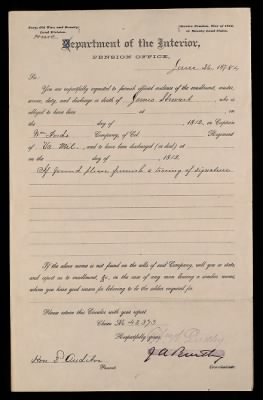 Department of the Interior,
PENSION OFFICE,
June 26, 187
Sir:
You are respectfully requested to furnish official evidence of the enrollment, muster,
service, duty, and discharge or death of James Stewart, who is
alleged to have been at , on
the day of , 1812, in Captain
Wm Company, of Col. Regiment
of Va. Mil., and to have been discharged (or died) at
on the day of , 1812.
If found please furnish a tracing of signature
If the above name is not found on the rolls of said Company, will you so state,
and report as to enrollment, &c., in the case of any man bearing a similar name,
whom you have good reason for believing to be the soldier inquired for.
Please return this Circular with your report
Claim No. 42373
Respectfully yours,
J A Bentley
Hon. 2d Auditor
Present. Commissioner.